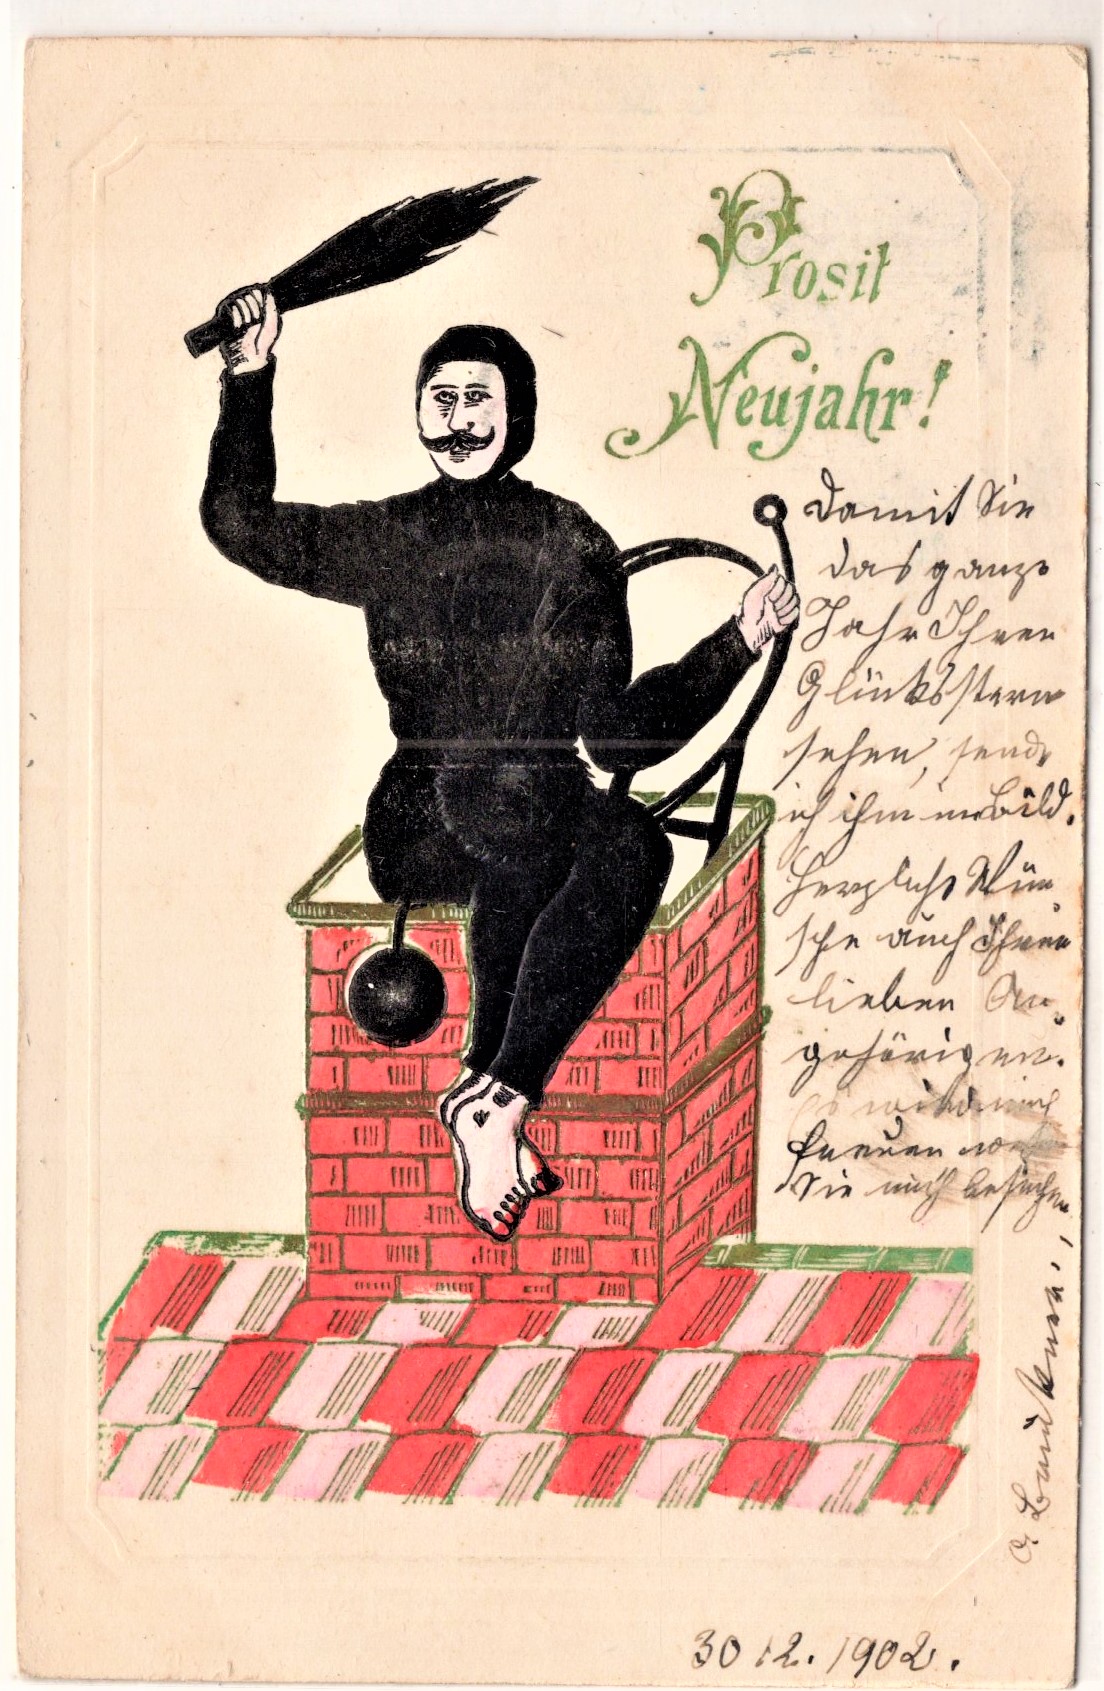 Prosit
Neujahr!
Damit Sie
das ganze
Jahr Ihren
Glücksstern
sehen, sende
ich ihn im Bild.
Herzliche Wün-
sche auch Ihren
lieben An-
gehörigen.
Es wird mich
freuen wenn
Sie mich besuchen
30 12. 1902.